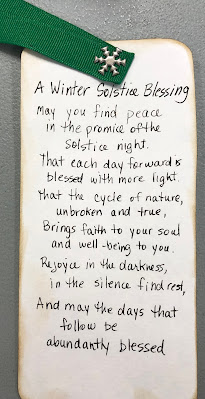 A Winter Solstice Blessing
May you find peace
in the promice of the
Solstice night.
That each day forward is
blessed with more light.
That the cycle of nature,
unbroken and true,
Brings faith to your soul
and well-being to you.
Rejoyce in the darkness,
in the silence find rest,
And may the days that
follow be
abundantly blessed